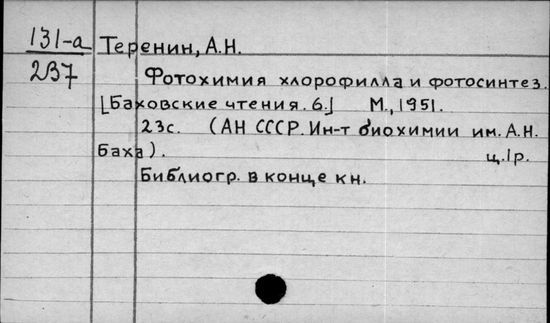 131-а Теренин, А.Н.
237
Фотохимия хлорофилла и фотосинтез.
[Баховские чтения. 6.] М., 1951.
23с. (АН СССР. Ин-т биохимии им. А.Н.
Баха). ц. 1р.
Библиогр. в конце кн.